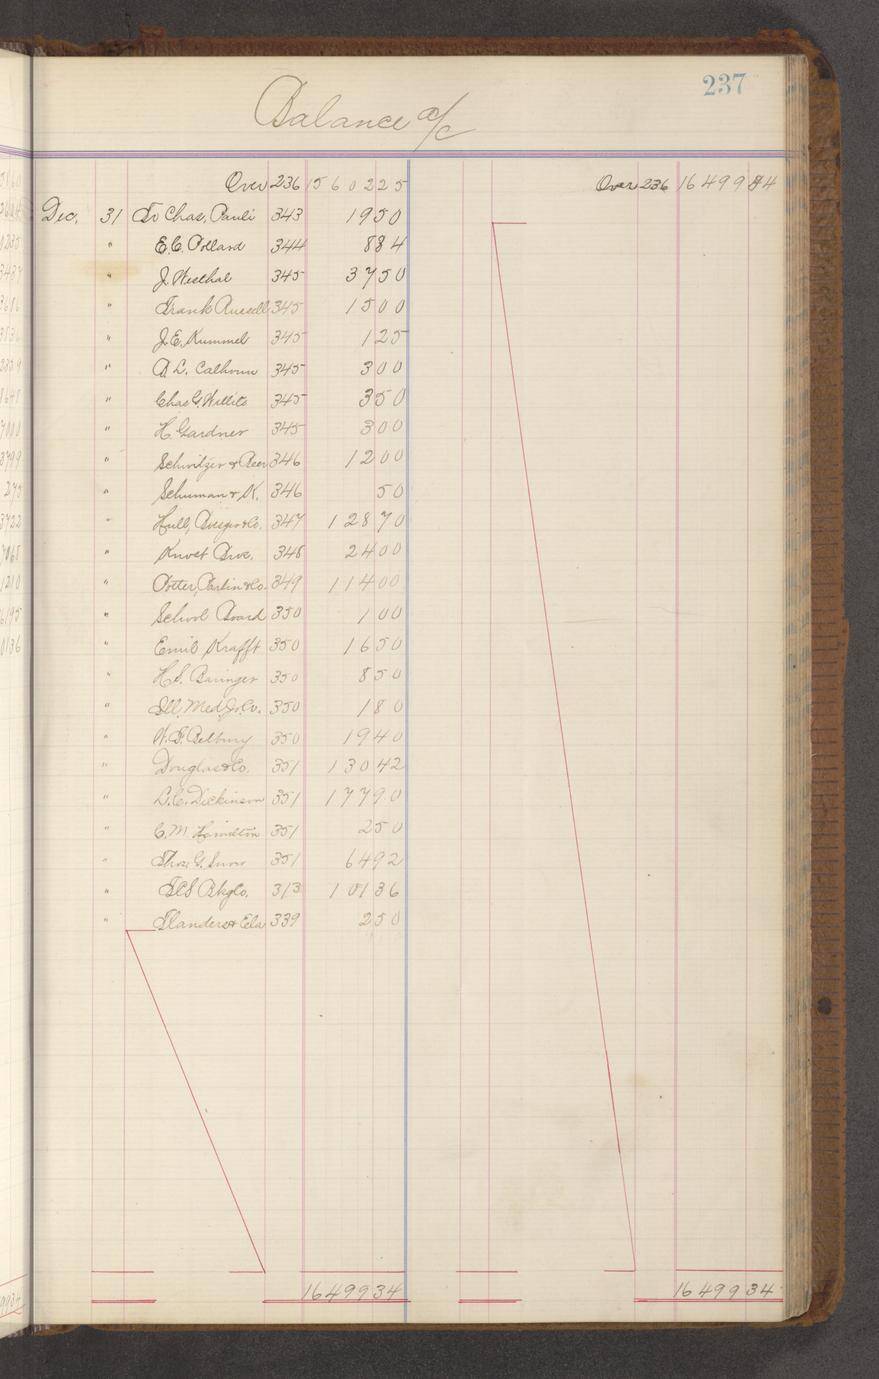 237
Balance a/c
Over 236 15 6 0 2 2 5
Over 236 16 4 9 9 3 4
Dec. 31 To Chas. Pauli 343 19 5 0
" E. C. Pollard 344 8 8 4
" J. Westhal 345 3 7 5 0
" Frank Russell 345 1 5 0 0
" J. E. Kummel 345 1 2 5
" A. L. Calhoun 345 3 0 0
" Chas G. Willits 345 3 5 0
" H. Gardner 345 3 0 0
" Schwitzer & Beer 346 1 2 0 0
" Schuman & K. 346 5 0
" Hull, & Co. 347 1 2 8 7 0
" Bros. 348 2 4 0 0
" Potter, Parlin & Co. 349 1 1 4 0 0
" School Board 350 1 0 0
" Emil Krafft 350 1 6 5 0
" H. S. Baringer 350 8 5 0
" Ill. Med. Jr. Co. 350 1 8 0
" W. F. 350 1 9 4 0
" Douglas & Co. 351 1 3 0 4 2
" L. C. Dickinson 351 1 7 7 9 0
" C. M. Hamilton 351 2 5 0
" Thos. G. 351 6 4 9 2
" Bkg Co. 313 1 0 1 3 6
" Flanders & Ela 339 2 5 0
16 4 9 9 3 4
16 4 9 9 3 4